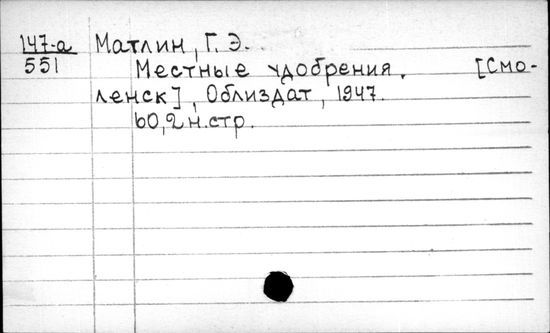 147-а Матлин, Г. Э.
551 Местные удобрения. [Смо-
ленск], Облиздат, 1947.
60,2 н.стр.